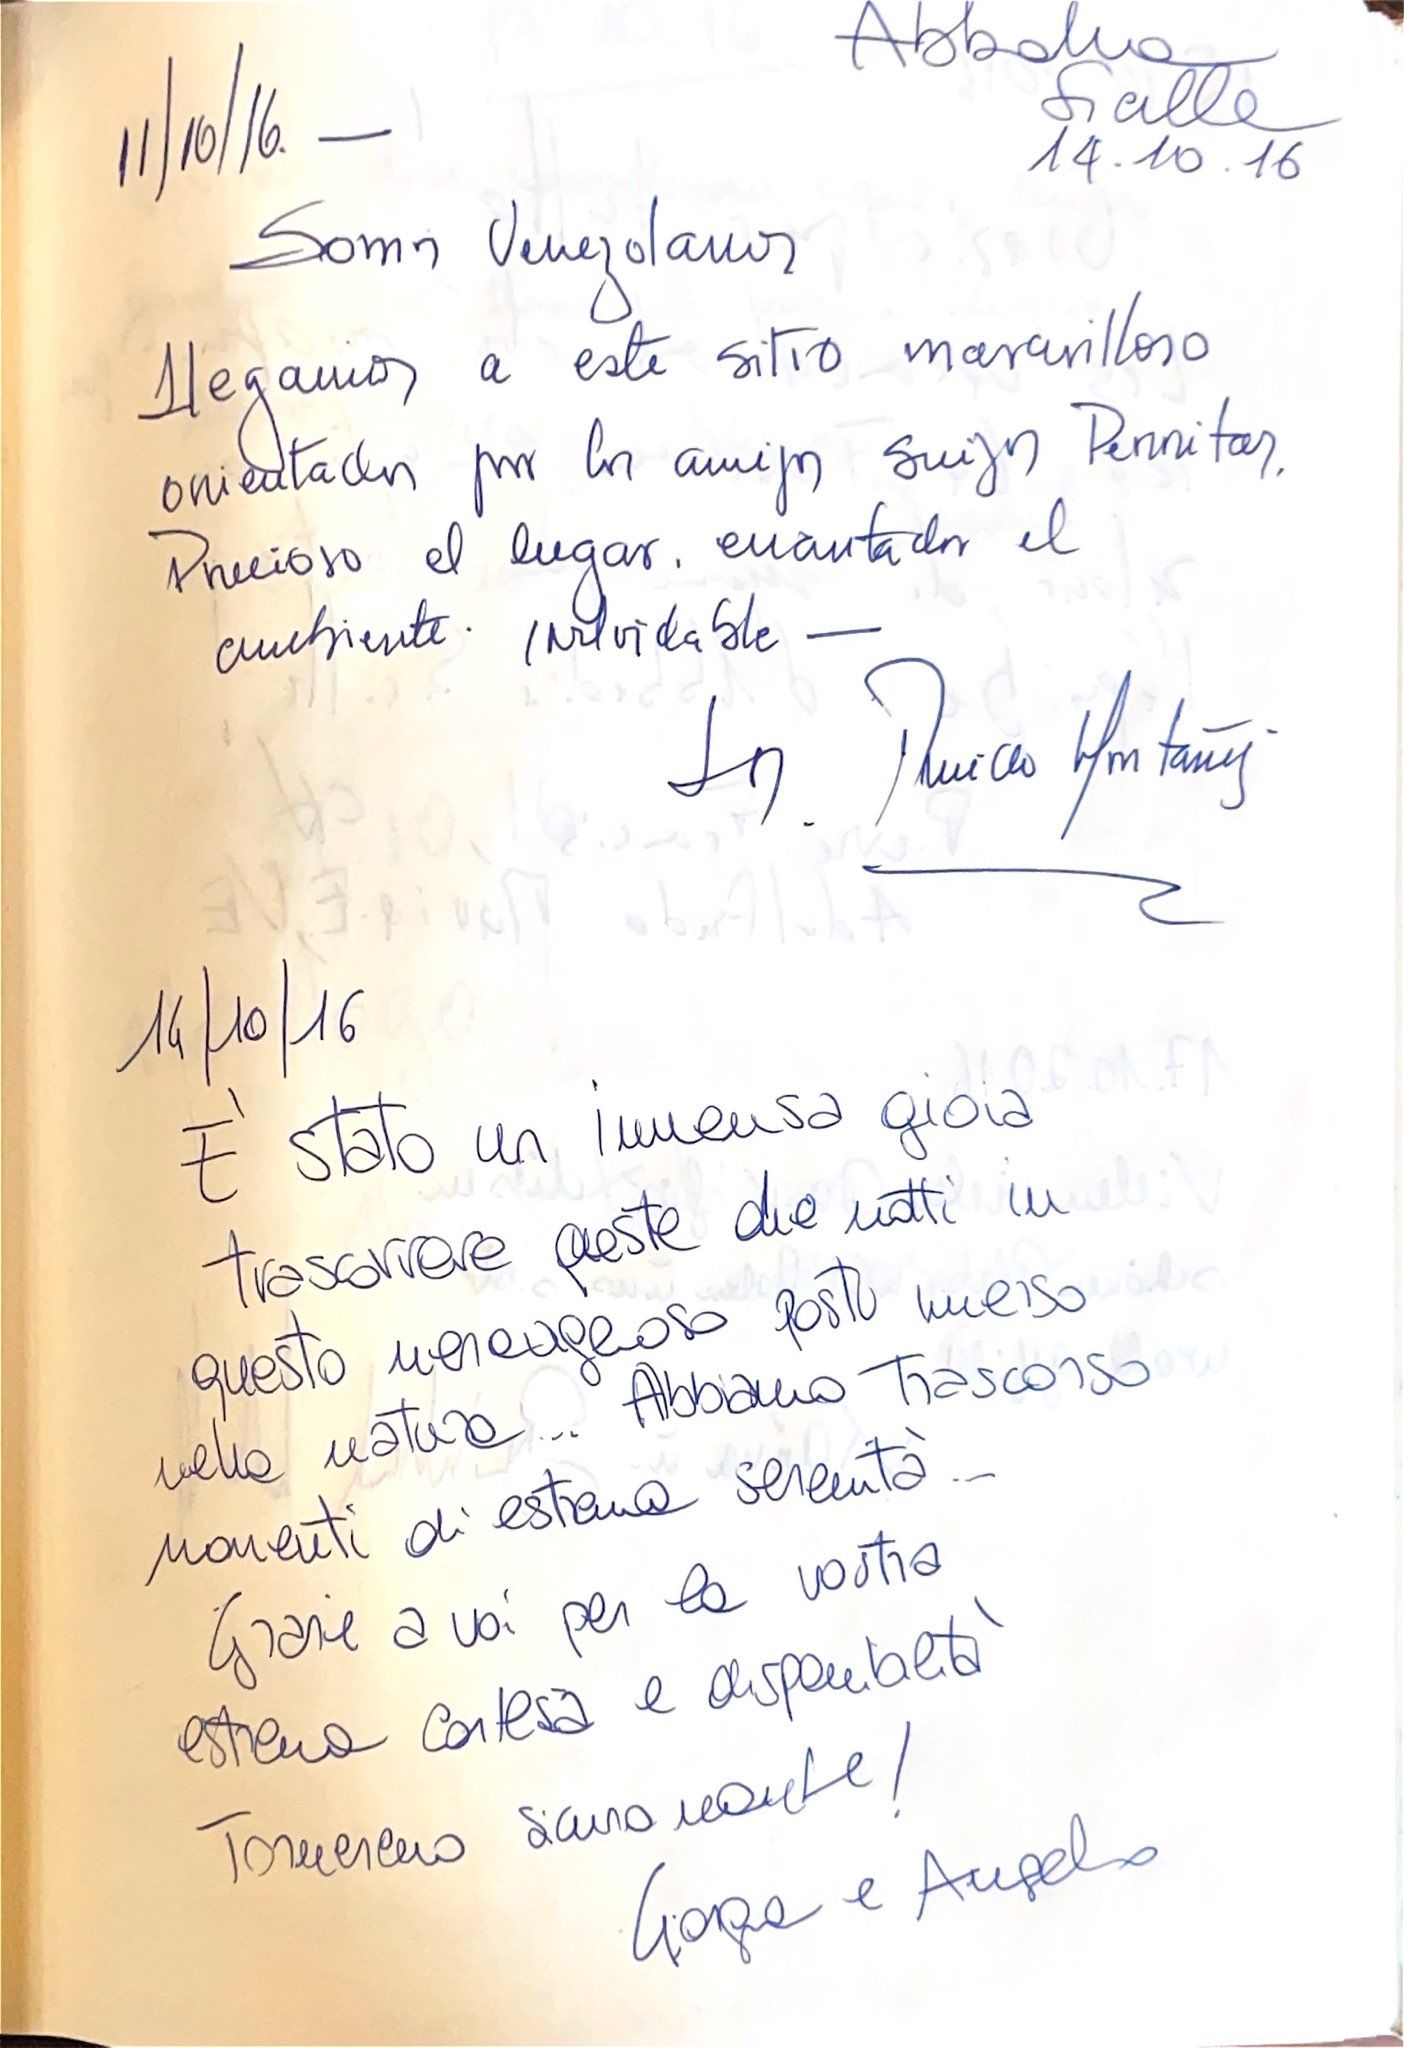 Abbadia
Sicille
14.10.16
11/10/16. —
Somos Venezolanos
Llegamos a este sitio maravilloso
orientados por los amigos suizos
Precioso el lugar. encantador el
ambiente. inolvidable —
Montañez
14/10/16
È stato un immensa gioia
trascorrere queste due notti in
questo meraviglioso posto immerso
nella natura... Abbiamo trascorso
momenti di estrema serenità...
Grazie a voi per la vostra
estrema cortesia e disponibilità
Torneremo sicuramente!
Giorgia e Angelo